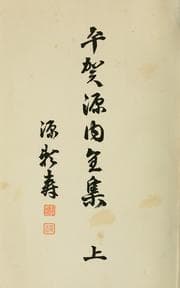 平賀源内全集 上
源彰寿